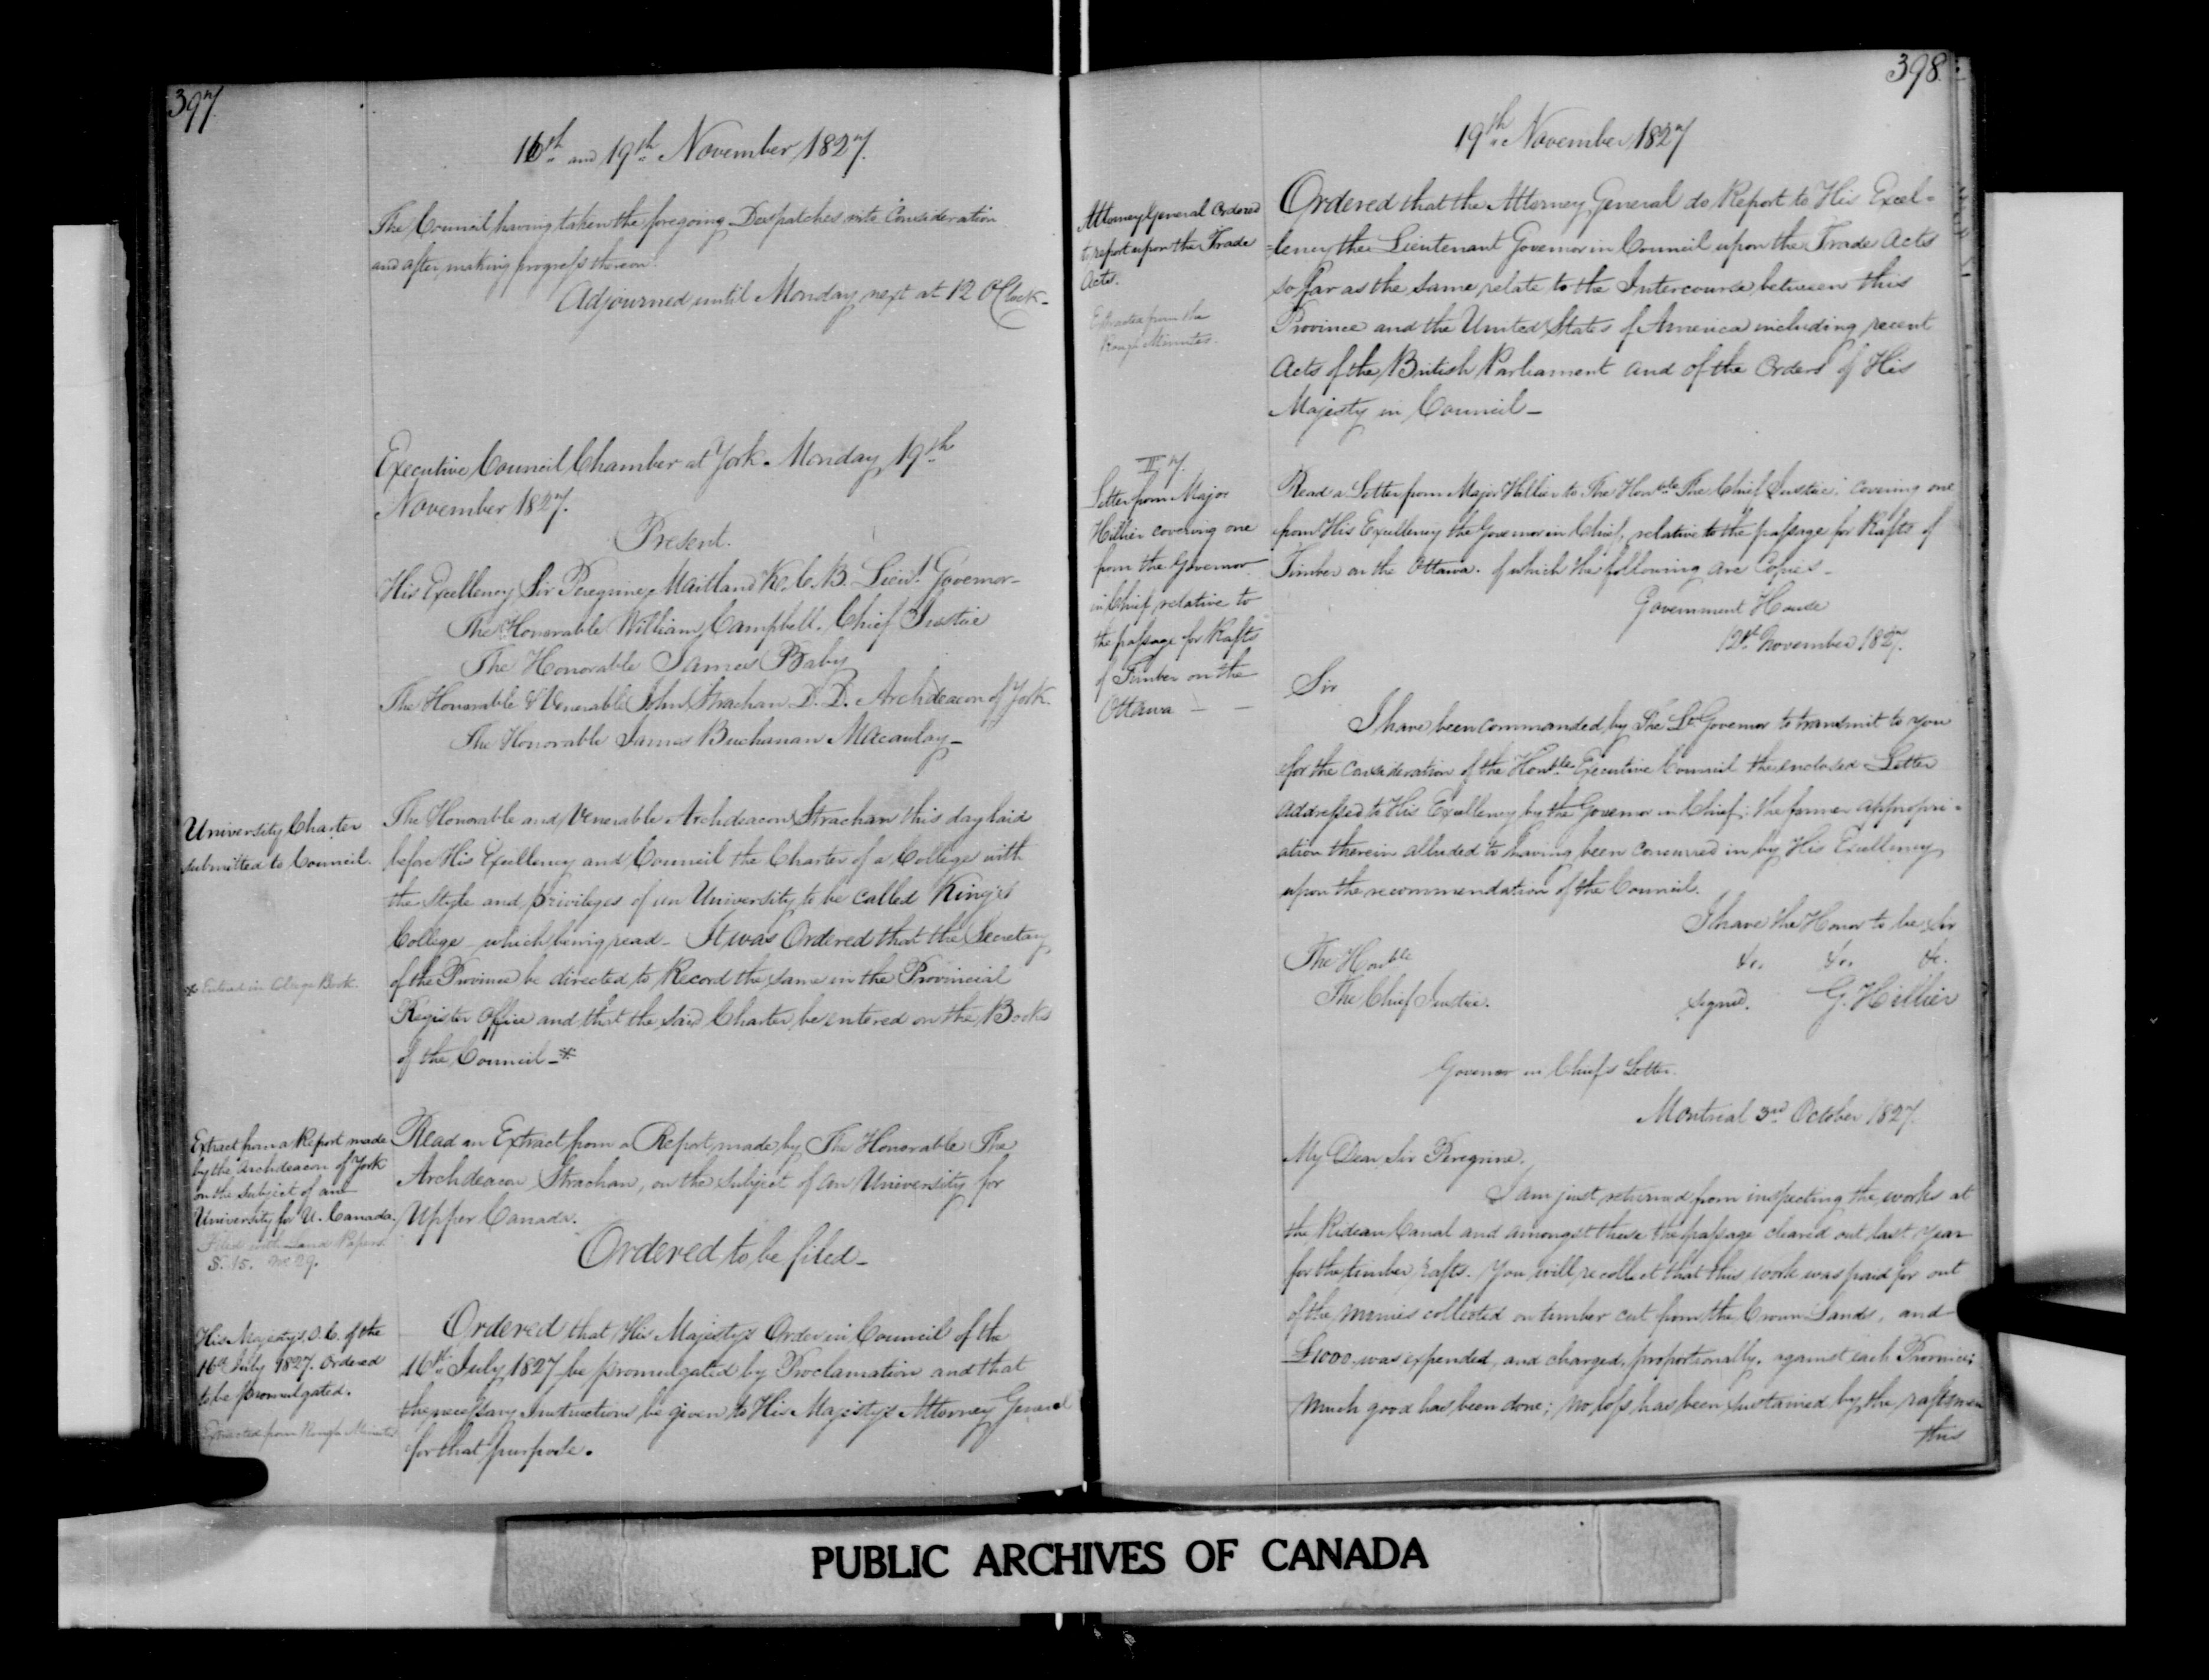 397.
16th and 19th November 1827.
The Council having taken the foregoing Despatches into Consideration
and after making progress thereon.
Adjourned until Monday next at 12 OClock_
Executive Council Chamber at York. Monday, 19th
November 1827.
Present.
His Excellency Sir Peregrine Maitland K.C.B. Lieut. Governor_
The Honorable William Campbell. Chief Justice
The Honorable James Baby
The Honorable & Venerable John Strachan D.D. Archdeacon of York.
The Honorable James Buchanan Macaulay_
University Charter
submitted to Council.
The Honorable and Venerable Archdeacon Strachan this day laid
before His Excellency and Council the Charter of a College with
the Style and privileges of an University to be called King's
College_ which being read_ It was Ordered that the Secretary
of the Province be directed to Record the same in the Provincial
Register Office and that the said Charter be entered on the Books
of the Council_*
* Entered in Book.
Extract from a Report made
by the Archdeacon of York
on the subject of an
University for U. Canada.
Filed with Land Papers
S. 15. No 29.
Read an Extract from a Report made by The Honorable The
Archdeacon Strachan, on the subject of an University for
Upper Canada.
Ordered to be filed_
His Majesty's O.C. of the
16th July 1827. Ordered
to be promulgated.
Extracted from Rough Minutes
Ordered that His Majesty's Order in Council of the
16th July 1827 be promulgated by Proclamation and that
the necessary Instructions be given to His Majesty's Attorney General
for that purpose.
398.
19th November 1827
Attorney General Ordered
to report upon the Trade
Acts.
Extracted from the
Rough Minutes.
Ordered that the Attorney General do Report to His Excel=
=lency the Lieutenant Governor in Council upon the Trade Acts
so far as the same relate to the Intercourse between this
Province and the United States of America including recent
Acts of the British Parliament and of the Orders of His
Majesty in Council_
Letter from Major
Hillier covering one
from the Governor
in Chief relative to
the passage for Rafts
of Timber on the
Ottawa _ _
Read a Letter from Major Hillier to The Honble The Chief Justice. Covering one
from His Excellency the Governor in Chief, relative to the passage for Rafts of
Timber on the Ottawa. of which the following are Copies_
Government House
November 1827.
Sir
I have been commanded by The Lt Governor to transmit to you
for the Consideration of the Honble Executive Council the enclosed Letter
addressed to His Excellency by the Governor in Chief: the former appropri=
ation therein alluded to having been concurred in by His Excellency
upon the recommendation of the Council.
I have the Honor to be Sir
The Honble &c. &c. &c.
The Chief Justice. signed. G. Hillier
Governor in Chiefs Letter.
Montreal 3rd October 1827.
My Dear Sir Peregrine.
I am just returned from inspecting the works at
the Rideau Canal and amongst these the passage cleared out last year
for the timber rafts. You will recollect that this work was paid for out
of the monies collected on timber cut from the Crown Lands, and
£1000 was expended, and charged, proportionally, against each Province;
Much good has been done; no loss has been sustained by the raftsmen
this
PUBLIC ARCHIVES OF CANADA